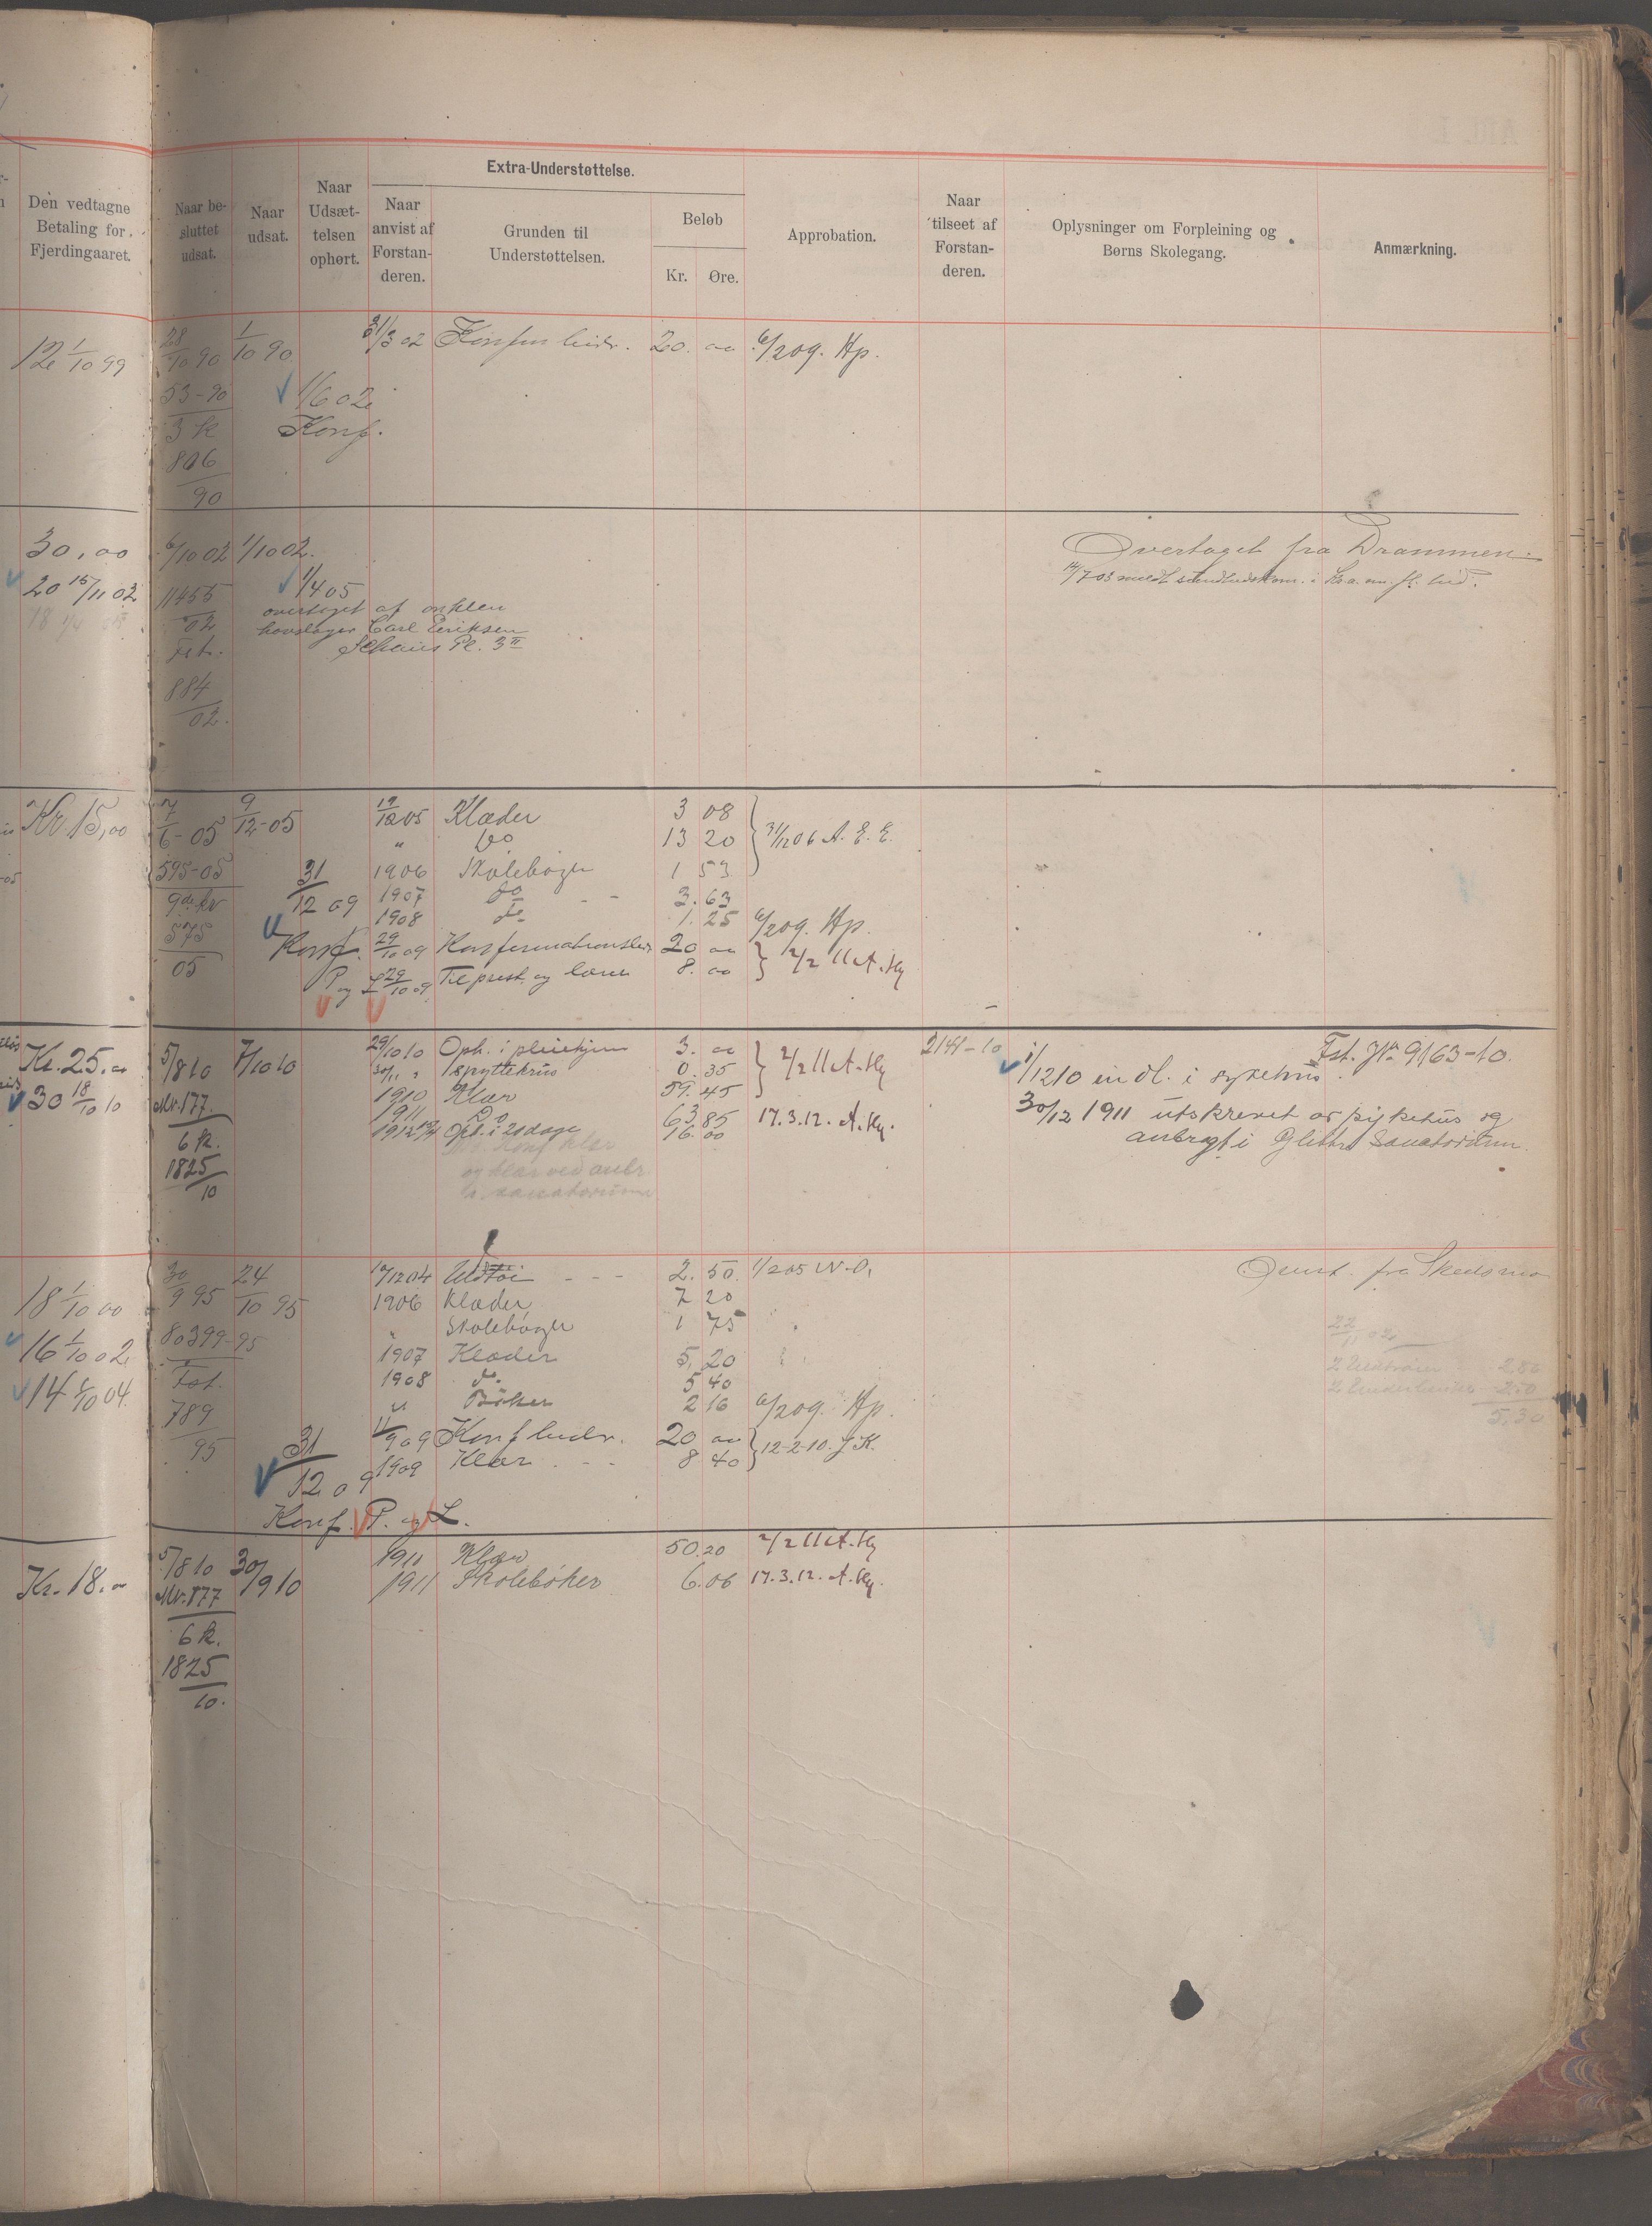 Den vedtagne
Betaling for
Fjerdingaaret.
Naar be-
sluttet
udsat.
Naar
udsat.
Naar
Udsæt-
telsen
ophørt.
Extra-Understøttelse.
Naar
anvist af
Forstan-
deren.
Grunden til
Understøttelsen.
Beløb
Kr. Øre.
Approbation.
Naar
tilseet af
Forstan-
deren.
Oplysninger om Forpleining og
Børns Skolegang.
Anmærkning.
12 1/10 99 28/10 90 1/10 90 31/3 02 20. 00 6/2 09. Hp.
53-90 1/6 02
3 k Konf.
806
90
30,00 6/10 02 1/10 02. Overtaget fra Drammen.
20 15/11 02 11455 1/4 05
02 overtaget af onklen
Fst. Carl Eriksen
Schous Pl. 3 II
884
02.
Kr. 15,00 7/6-05 9/12-05 19/12 05 Klæder 3 08
" Do 13 20 31/12 06 A. E. E.
595-05 31 1906 Skolebøger 1 53
9de kv 12 09 1907 do - - 3.63
575 1908 do 1.25 6/2 09. Hp.
05 Konf. 29/10 09 20 00
P og L 29/10 09 Til prest og lærer 8.00 2/2 11 A. Hg
Kr. 25.00 5/8 10 7/10 10 29/10 10 Oph. i pleiehjem 3. 00 2141-10 1/12 10 indl. i sykehus. Fst. JN 9163-10.
30 18/10 10 Mr. 177. 30/11 " 1 spyttekrus 0.35 2/2 11 A. Hg
1910 Klær 59.45 30/12 1911 utskrevet av sykehus og
6 k. 1911 Do 63.85 17.3.12. A. Hg. anbragt i Glittre Sanatorium.
1825 1912 Oph. i 21 dage 16.00
10
og klær ved anbr.
sanatorium
18 1/10 00 30/9 95 24/10 95 10/12 04 Uldtøi - - - 2.50. 1/2 05 N.O. fra Skedsmo
16 1/10 02 80399-95 1906 Klæder 7 20
Skolebøger 1 75
14 1/10 04. Fst. 1907 Klæder 5,20
789 1908 do. 5 40
95 31 " Bøker 2 16 6/2 09. Hp.
12 09 11/9 09 20 00 12-2-10. J K.
1909 Klær . - - 8 40
5,30
Konf. P. og L.
Kr. 18.00 5/8 10 30/9 10 1911 Klær 50.20 2/2 11 A. Hg
Mr. 177 1911 Skolebøker 6.06 17.3.12. A. Hg.
6 k.
1825
10.